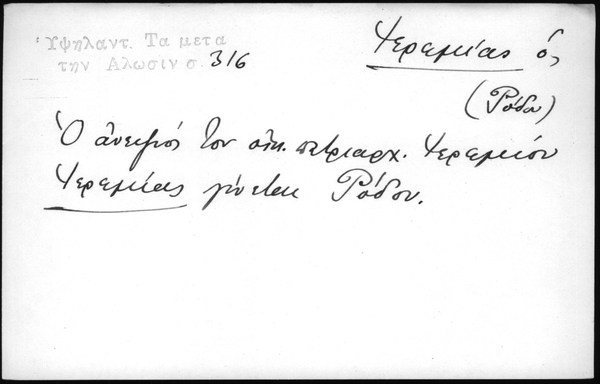 Ὑψηλαντ. Τα μετα
την Αλωσιν σ. 316
Ἱερεμίας ὁ,
(Ρόδου)
Ὁ ἀνεψιός του οἰκ. πατριαρχ. Ἱερεμίου
Ἱερεμίας γίνεται Ρόδου.